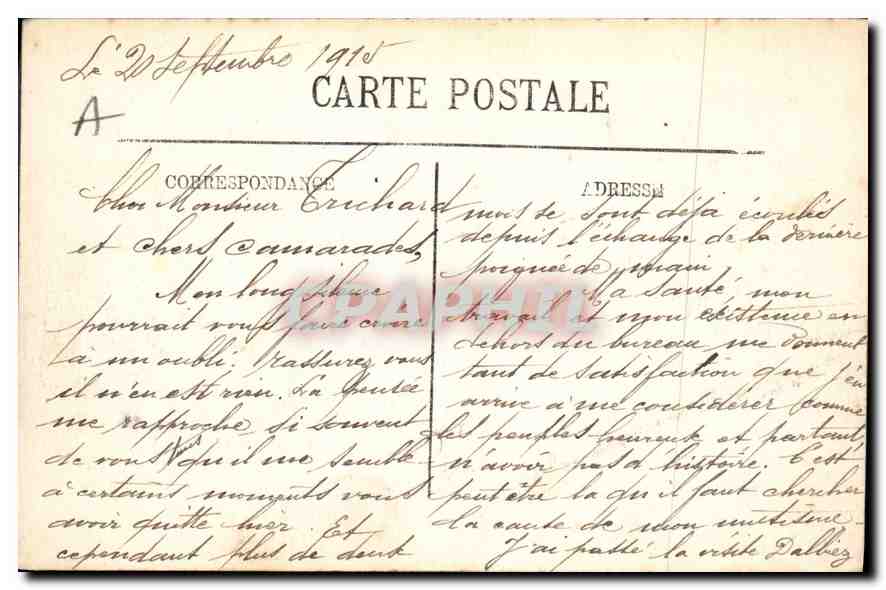 Le 20 Septembre 1915
CARTE POSTALE
A
CORRESPONDANCE
Cher Monsieur Trichard
et chers camarades,
Mon long silence
pourrait vous faire croire
à un oubli. Rassurez vous
il n'en est rien. La pensée
me rapproche si souvent
de vous tous qu'il me semble
à certains moments vous
avoir quitté hier. Et
cependant plus de deux
ADRESSE
mois se sont déjà écoulés
depuis l'échange de la dernière
poignée de main
Ma santé, mon
travail et mon existence en
dehors du bureau me donnent
tant de satisfaction que j'en
arrive à me considérer comme
les peuples heureux et partant,
n'avoir pas d'histoire. C'est
peut être là qu'il faut chercher
la cause de mon mutisme.
J'ai passé la visite Dalbiez
CPAPHIL